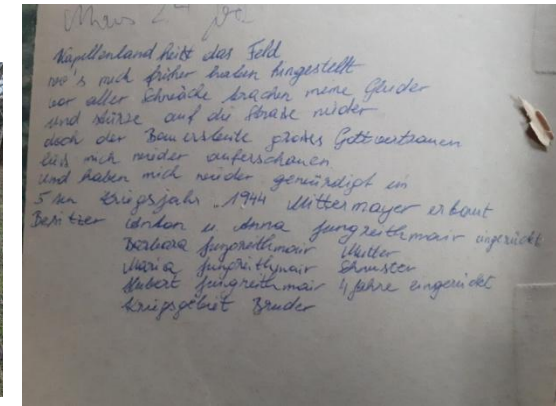 Kapellenland heißt das Feld
wo's mich früher haben hingestellt
vor aller Schwäche brachen meine Glieder
und stürze auf die Straße nieder
doch der Bauersleute großes Gottvertrauen
ließ mich wieder auferschauen
und haben mich wieder gewürdigt im
5 ten Kriegsjahr 1944 Mittermayer erbaut
Besitzer Anton u. Anna Jungreithmair eingerückt
Barbara Jungreithmair Mutter
Maria Jungreithmair
Hubert Jungreithmair 4 Jahre eingerückt
Kriegsgebiet Bruder